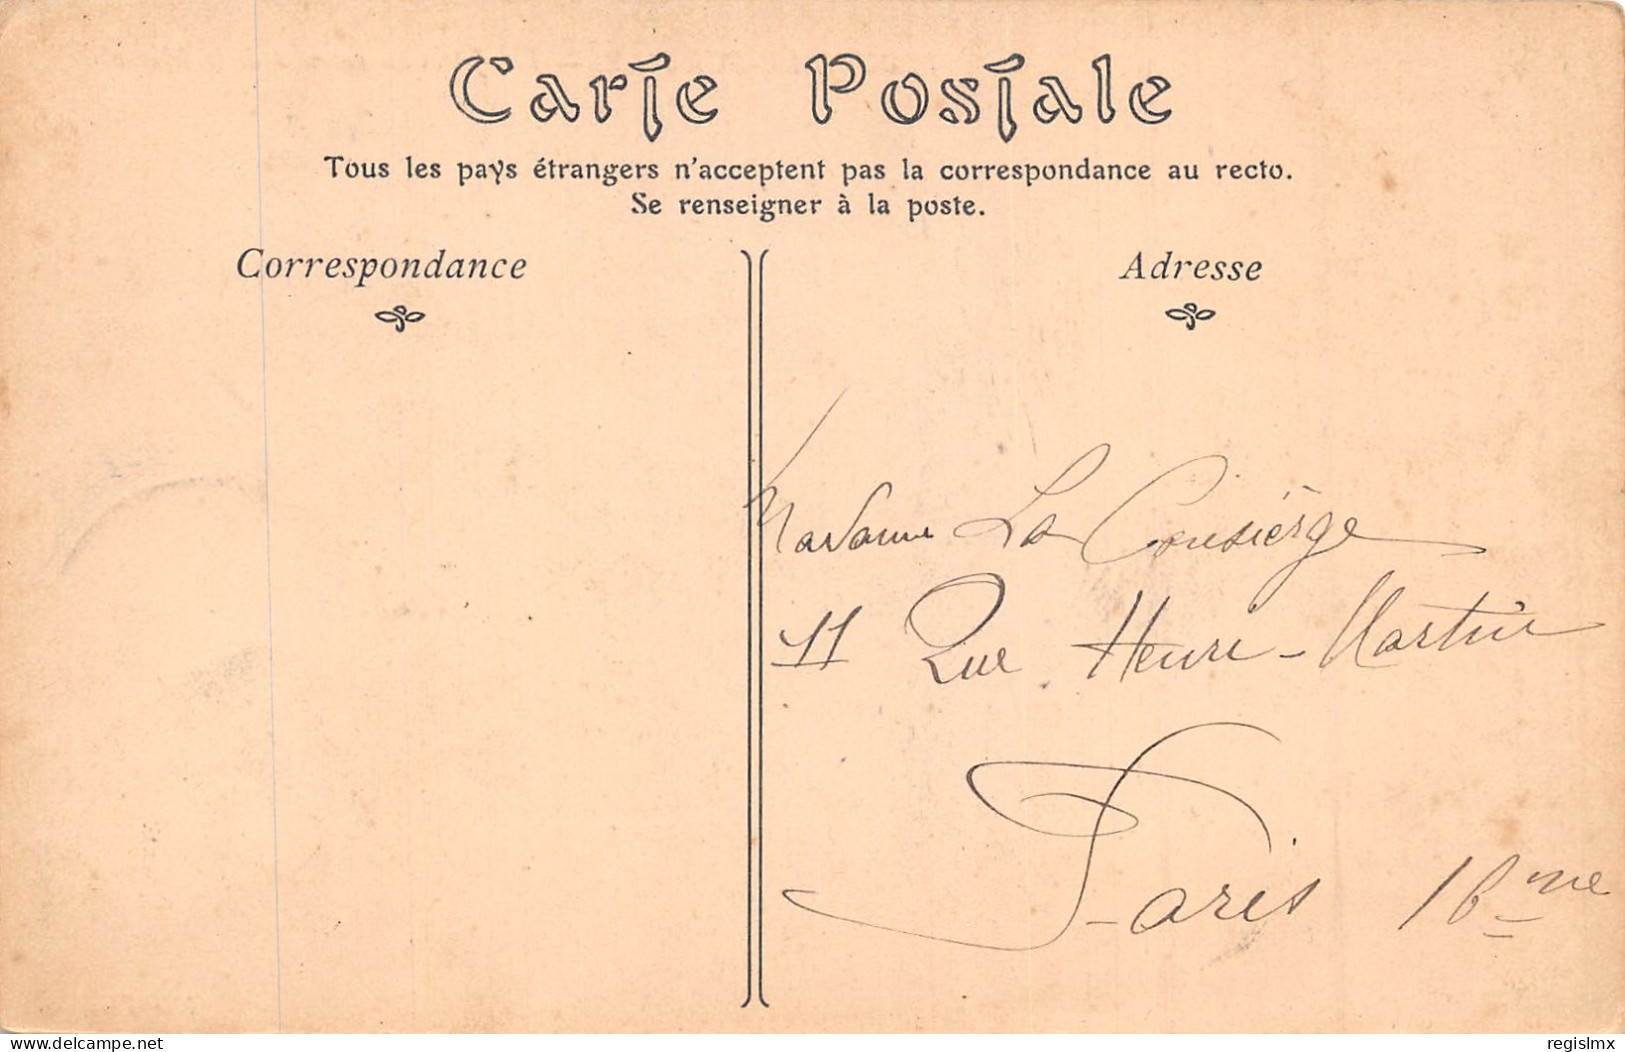 Carte Postale
Tous les pays étrangers n'acceptent pas la correspondance au recto.
Se renseigner à la poste.
Correspondance
Adresse
Madame La Consièrge
11 Rue Henri-Martin
Paris 16me
www.delcampe.net
regislmx